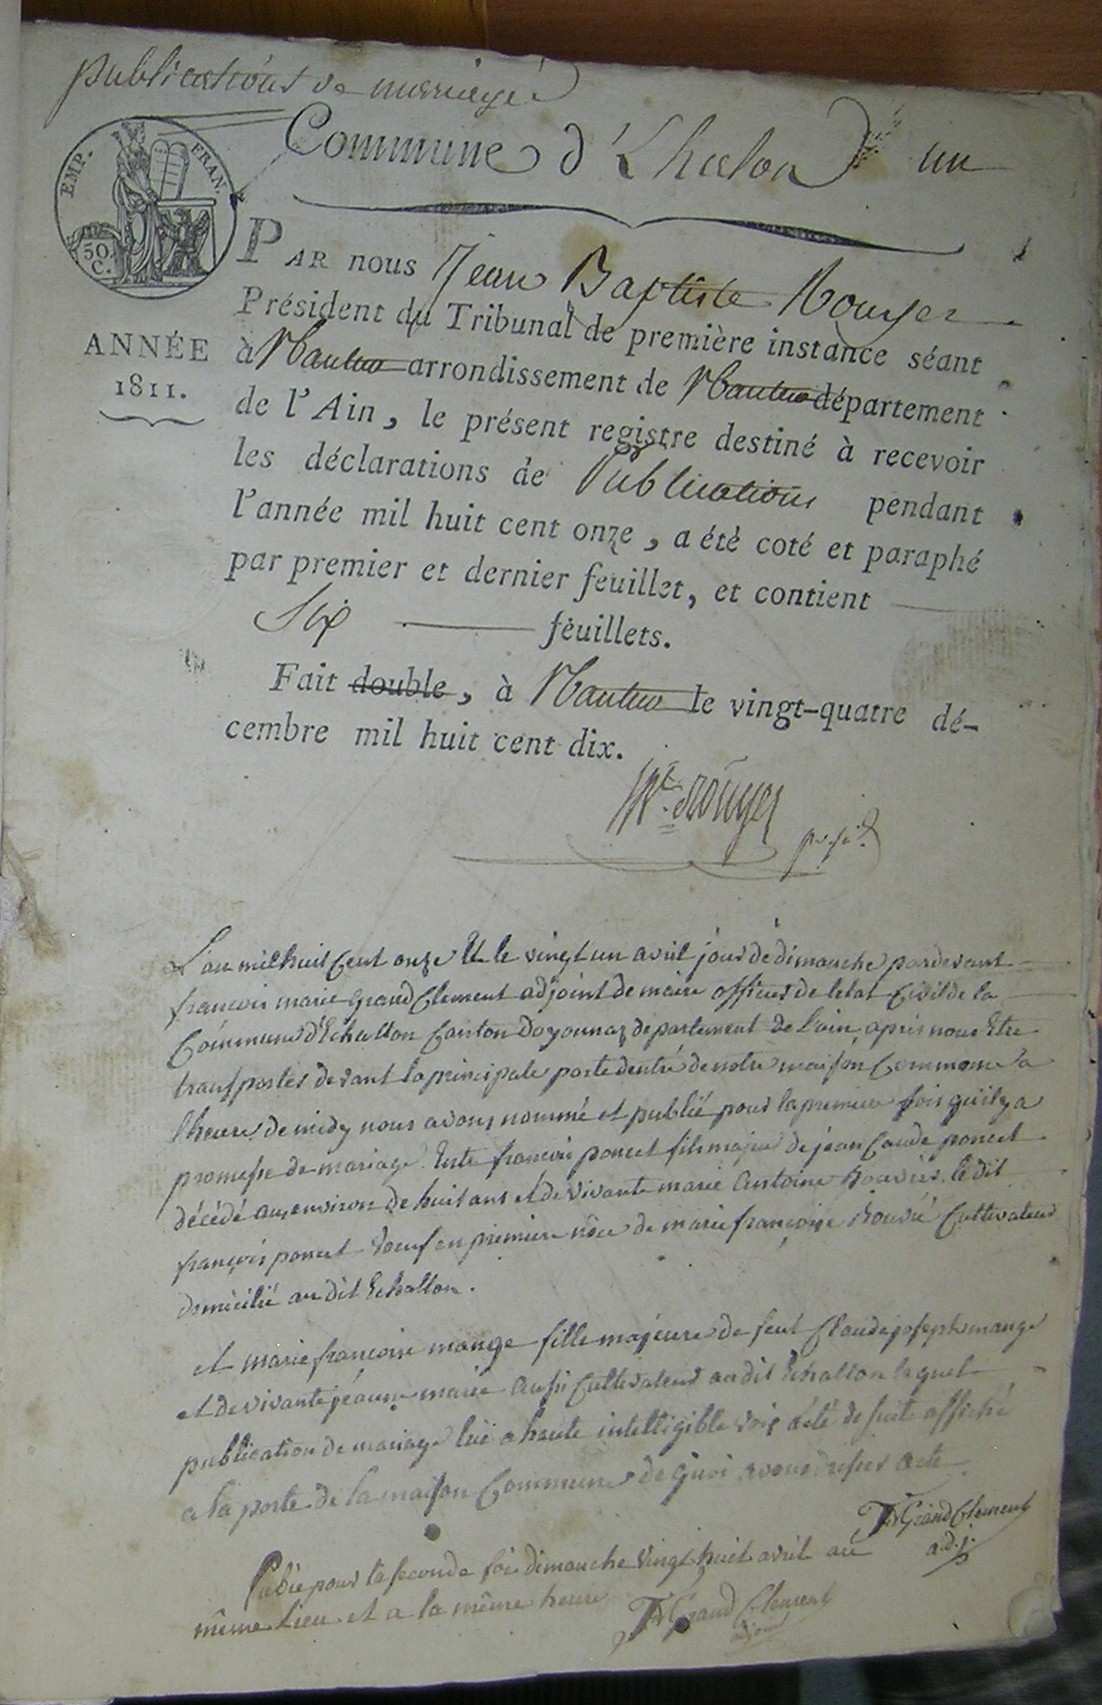 publications de mariage
Commune d'Echalon un
EMP. FRAN.
50. C.
ANNÉE
1811.
PAR nous Jean Baptiste Rouyer
Président du Tribunal de première instance séant
à Nantua arrondissement de Nantua département
de l'Ain, le présent registre destiné à recevoir
les déclarations de Publications pendant
l'année mil huit cent onze, a été coté et paraphé
par premier et dernier feuillet, et contient
Six feuillets.
Fait double, à Nantua le vingt-quatre dé-
cembre mil huit cent dix.
Rouyer
L'an mil huit Cent onze Et le vingt un avril jour de dimanche pardevant
francois marie Grand Clement adjoint de maire officier de letat Civil de la
Commune d'Echallon Canton Doyonnaz departement de Lain, aprés nous Etre
transportés devant la principale porte dentré de notre maison Commune a
lheure de midy nous avons nommé et publié pour la premiere fois quil y a
promesse de mariage Entre francois poncet fils majeur de jean Claude poncet
décédé aux environ de huit ans et de vivante marie Antoine Bouvier le dit
françois poncet Veuf en premiere nôce de marie françoise Bouvié Cultivateur
domicilié au dit Echallon.
et marie francoise mange fille majeure de feut Claude joseph mange
et de vivante jeanne marie Aussi Cultivateur au dit Echallon laquel
publication de mariage luë a haute intelligible voix a été de suit affiché
a la porte de la maison Commune de quoi avons dressé acte
GrandClement
adj.
Publié pour la seconde foi dimanche vingt huit avril au
même Lieu et a la même heure GrandClement